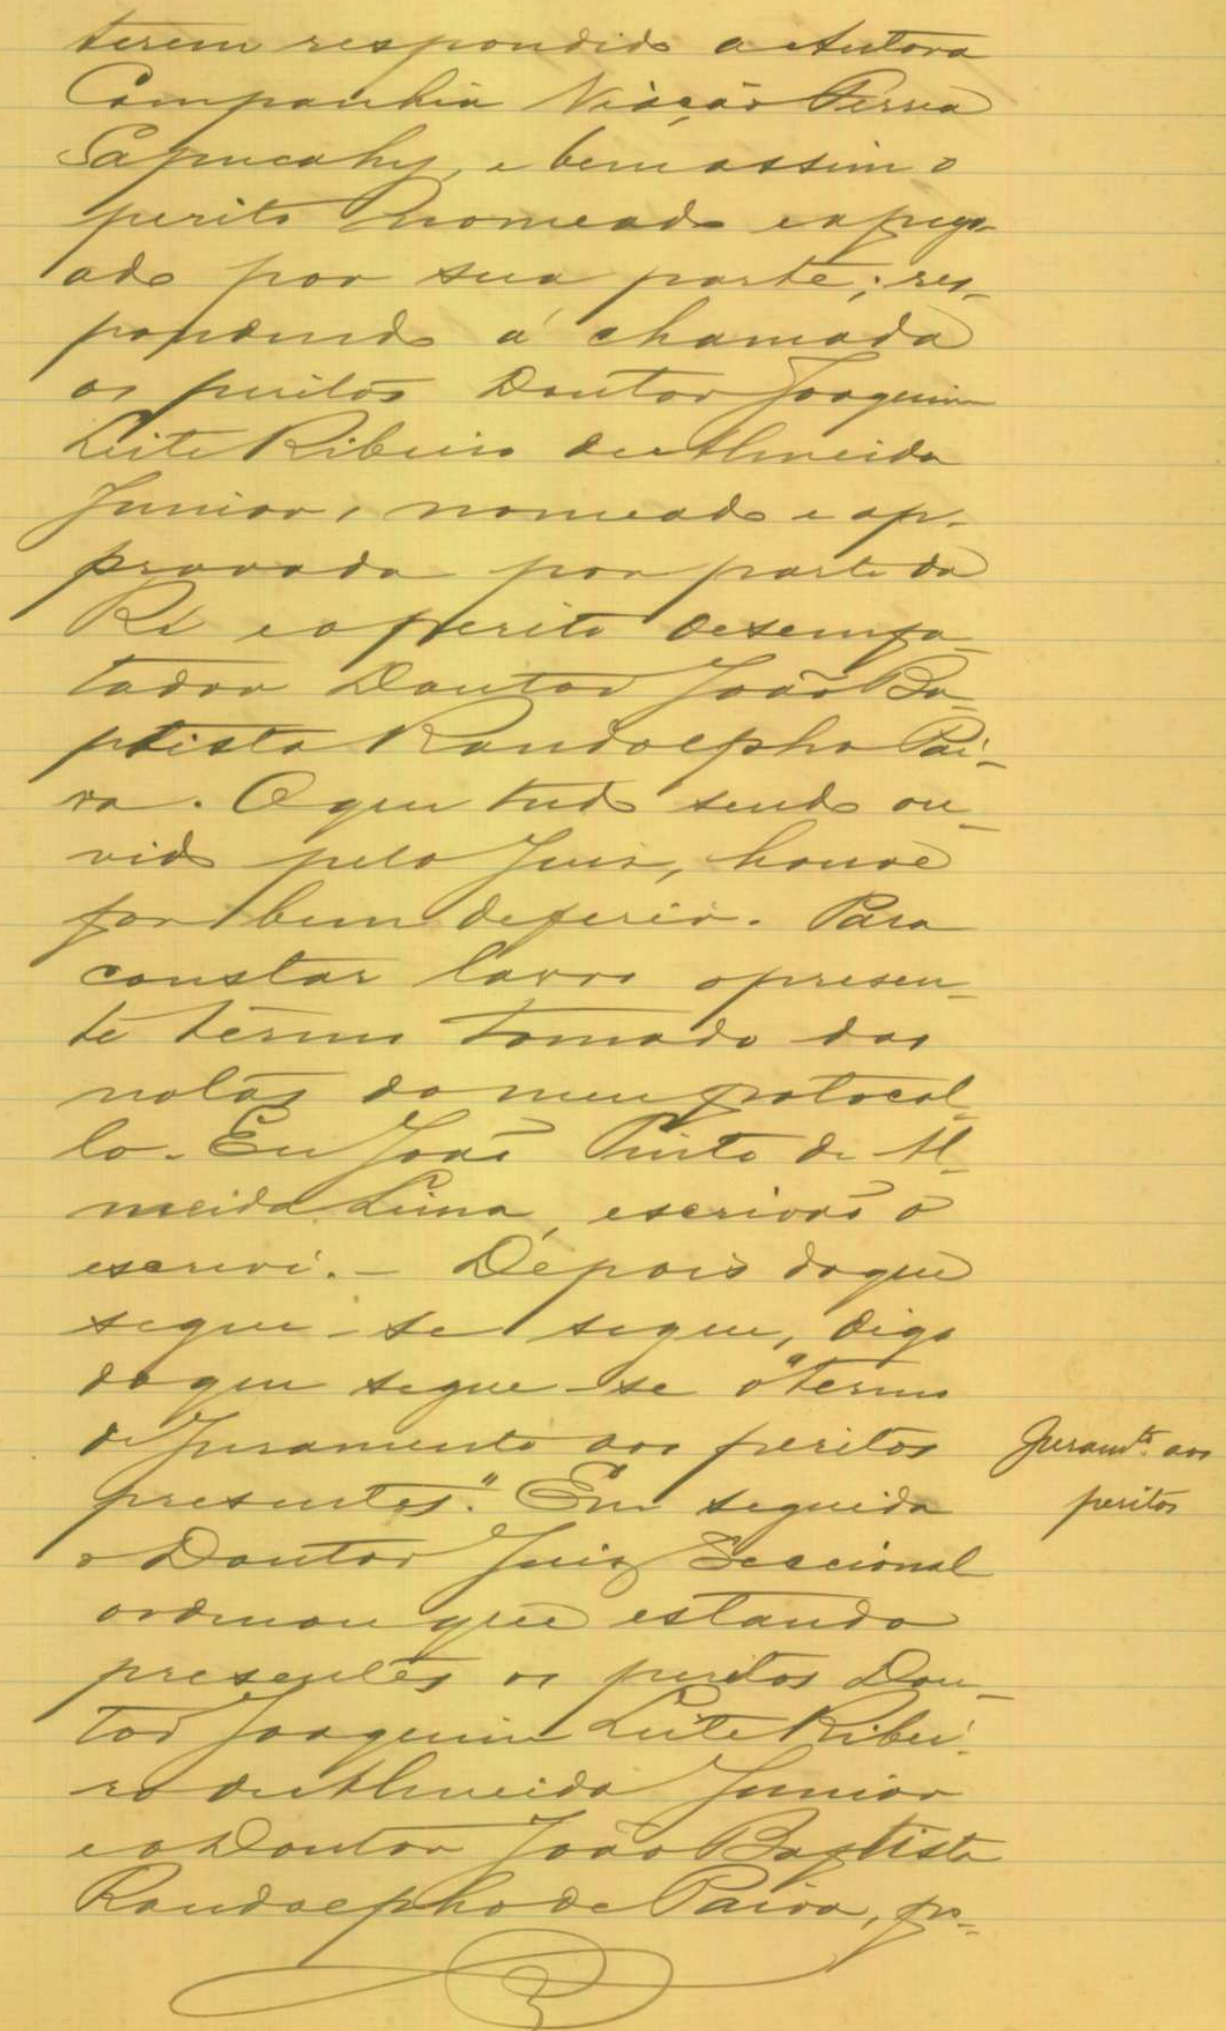 terem respondido a Autora
Companhia Viação Ferrea
Sapucahy, e bem assim o
perito nomeado e
ado por sua parte; res-
pondendo á chamada
os peritos Doutor Joaquim
Leite Ribeiro de Almeida
Junior, nomeado e ap-
provado por parte da
Ré e o perito desempa-
tador Doutor João Ba-
ptista Randolpho Pai-
va. O que tudo sendo ou-
vido pelo Juiz, houve
por bem deferir. Para
constar lavro o presen-
te termo tomado das
notas do meu protocol-
lo. Eu João Pinto de Al-
meida Lima, escrivão o
escrevi. – Depois do que
segue-se segue, digo
do que segue-se o "termo
de Juramento aos peritos
presentes." Em seguida
o Doutor Juiz Seccional
ordenou que estando
presentes os peritos Dou-
tor Joaquim Leite Ribei-
ro de Almeida Junior
e o Doutor João Baptista
Randolpho de Paiva, pr-
Juramto. aos
peritos